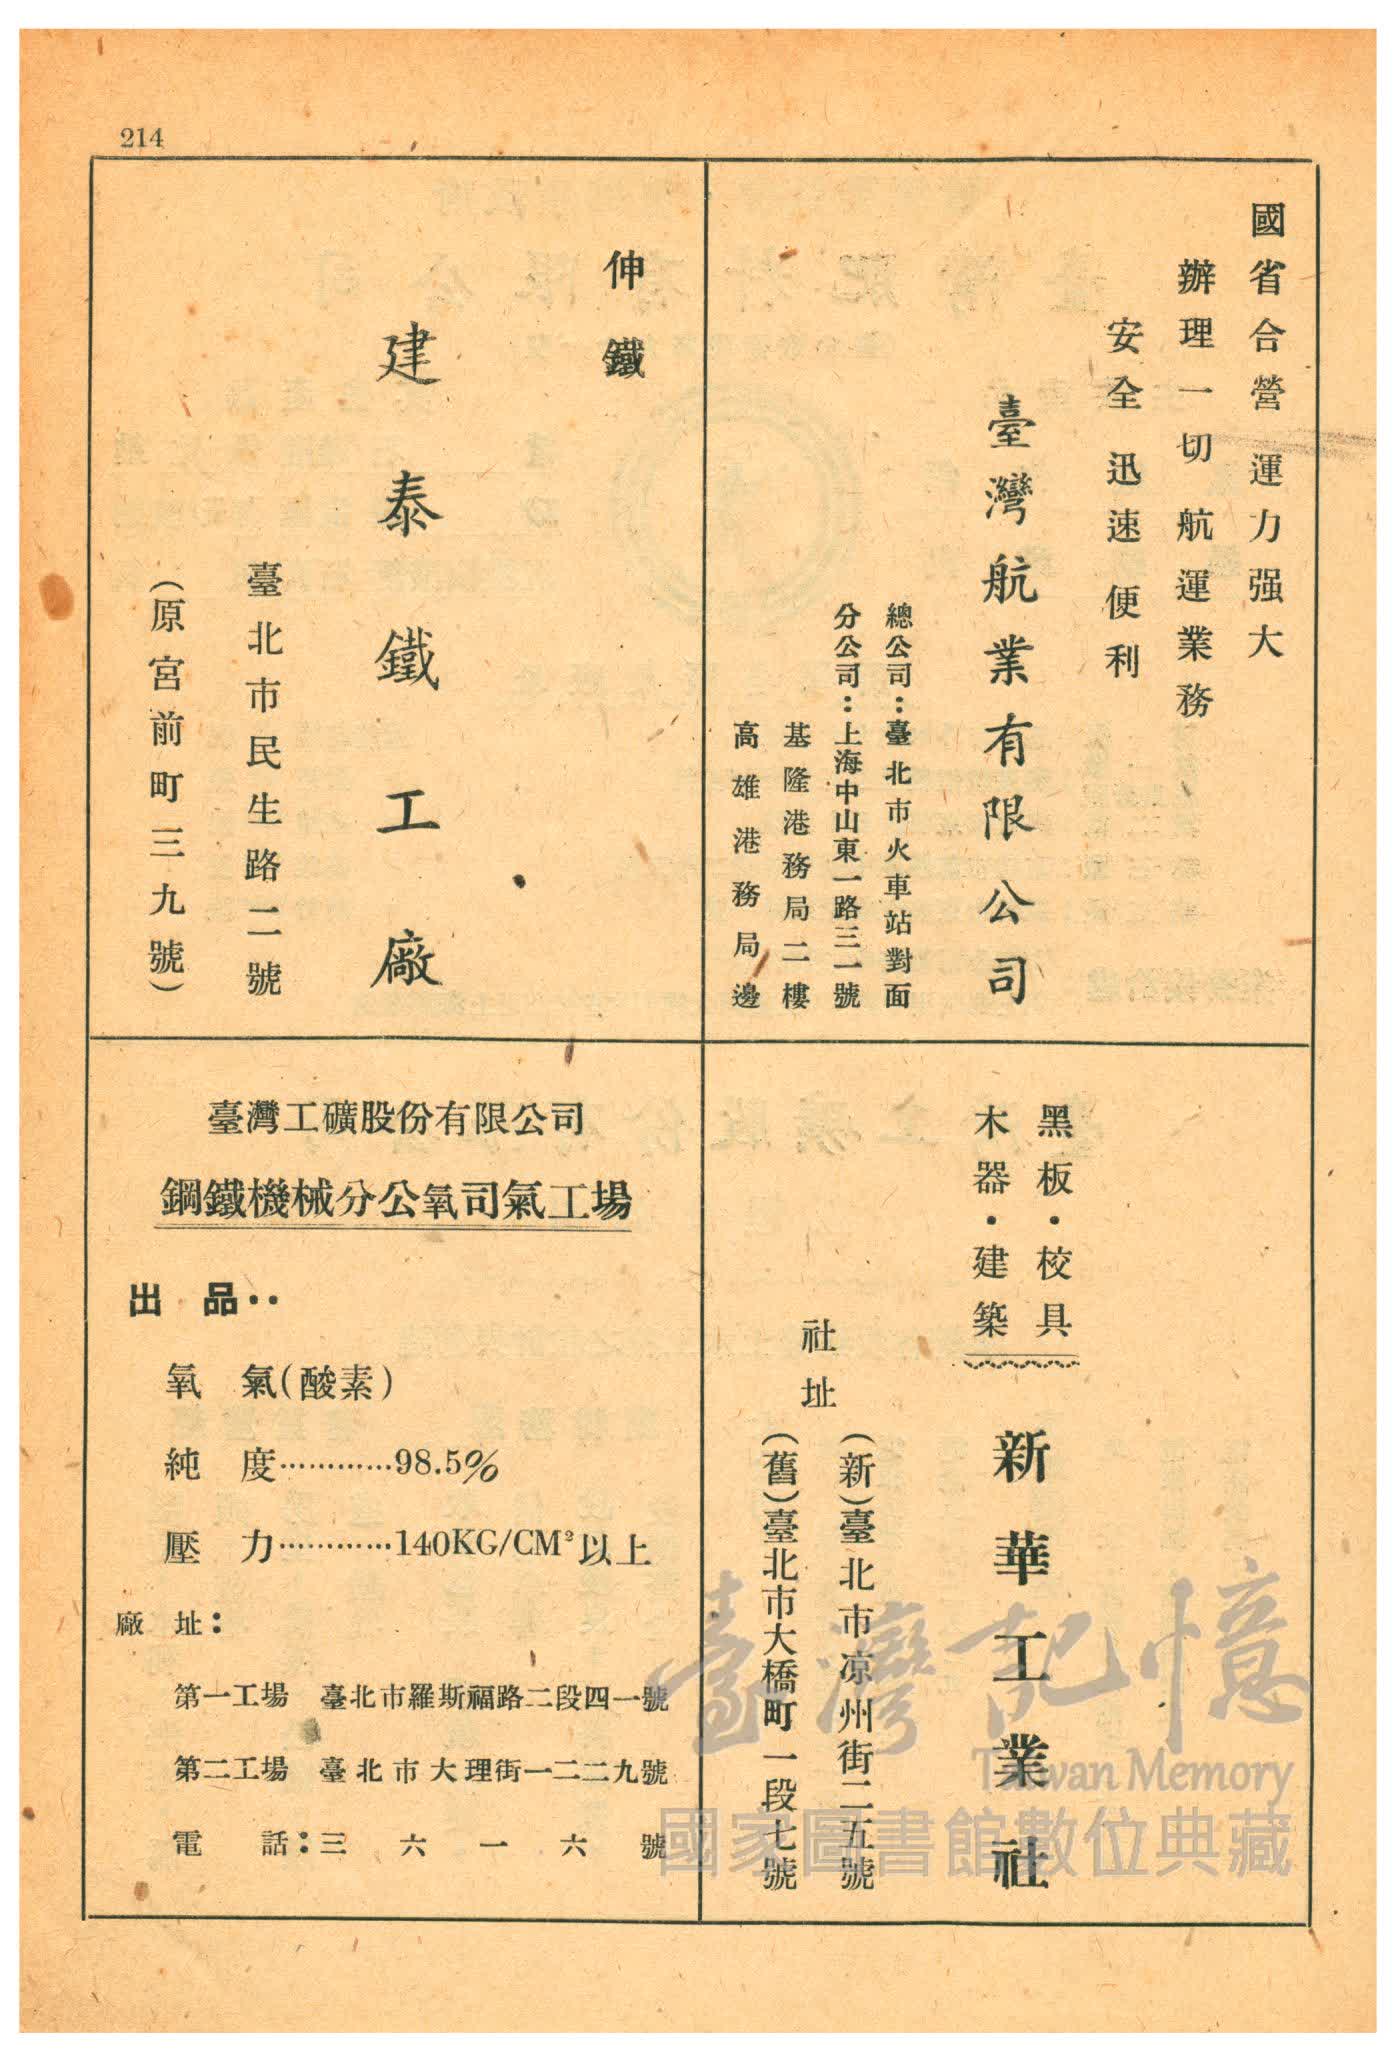 214
國省合營運力强大
辦理一切航運業務
安全迅速便利
臺灣航業有限公司
總公司：臺北市火車站對面
分公司：上海中山東一路三一號
基隆港務局二樓
高雄港務局邊
伸鐵
建泰鐵工廠
臺北市民生路二號
（原宮前町三九號）
黑板・校具
木器・建築
新華工業社
社址
（新）臺北市凉州街二五號
（舊）臺北市大橋町一段七號
臺灣工礦股份有限公司
鋼鐵機械分公氧司氣工場
出品：
氧氣（酸素）
純度…………98.5%
壓力…………140KG/CM²以上
廠址：
第一工場 臺北市羅斯福路二段四一號
第二工場 臺北市大理街一二二九號
電話：三六一六號
臺灣記憶
Taiwan Memory
國家圖書館數位典藏